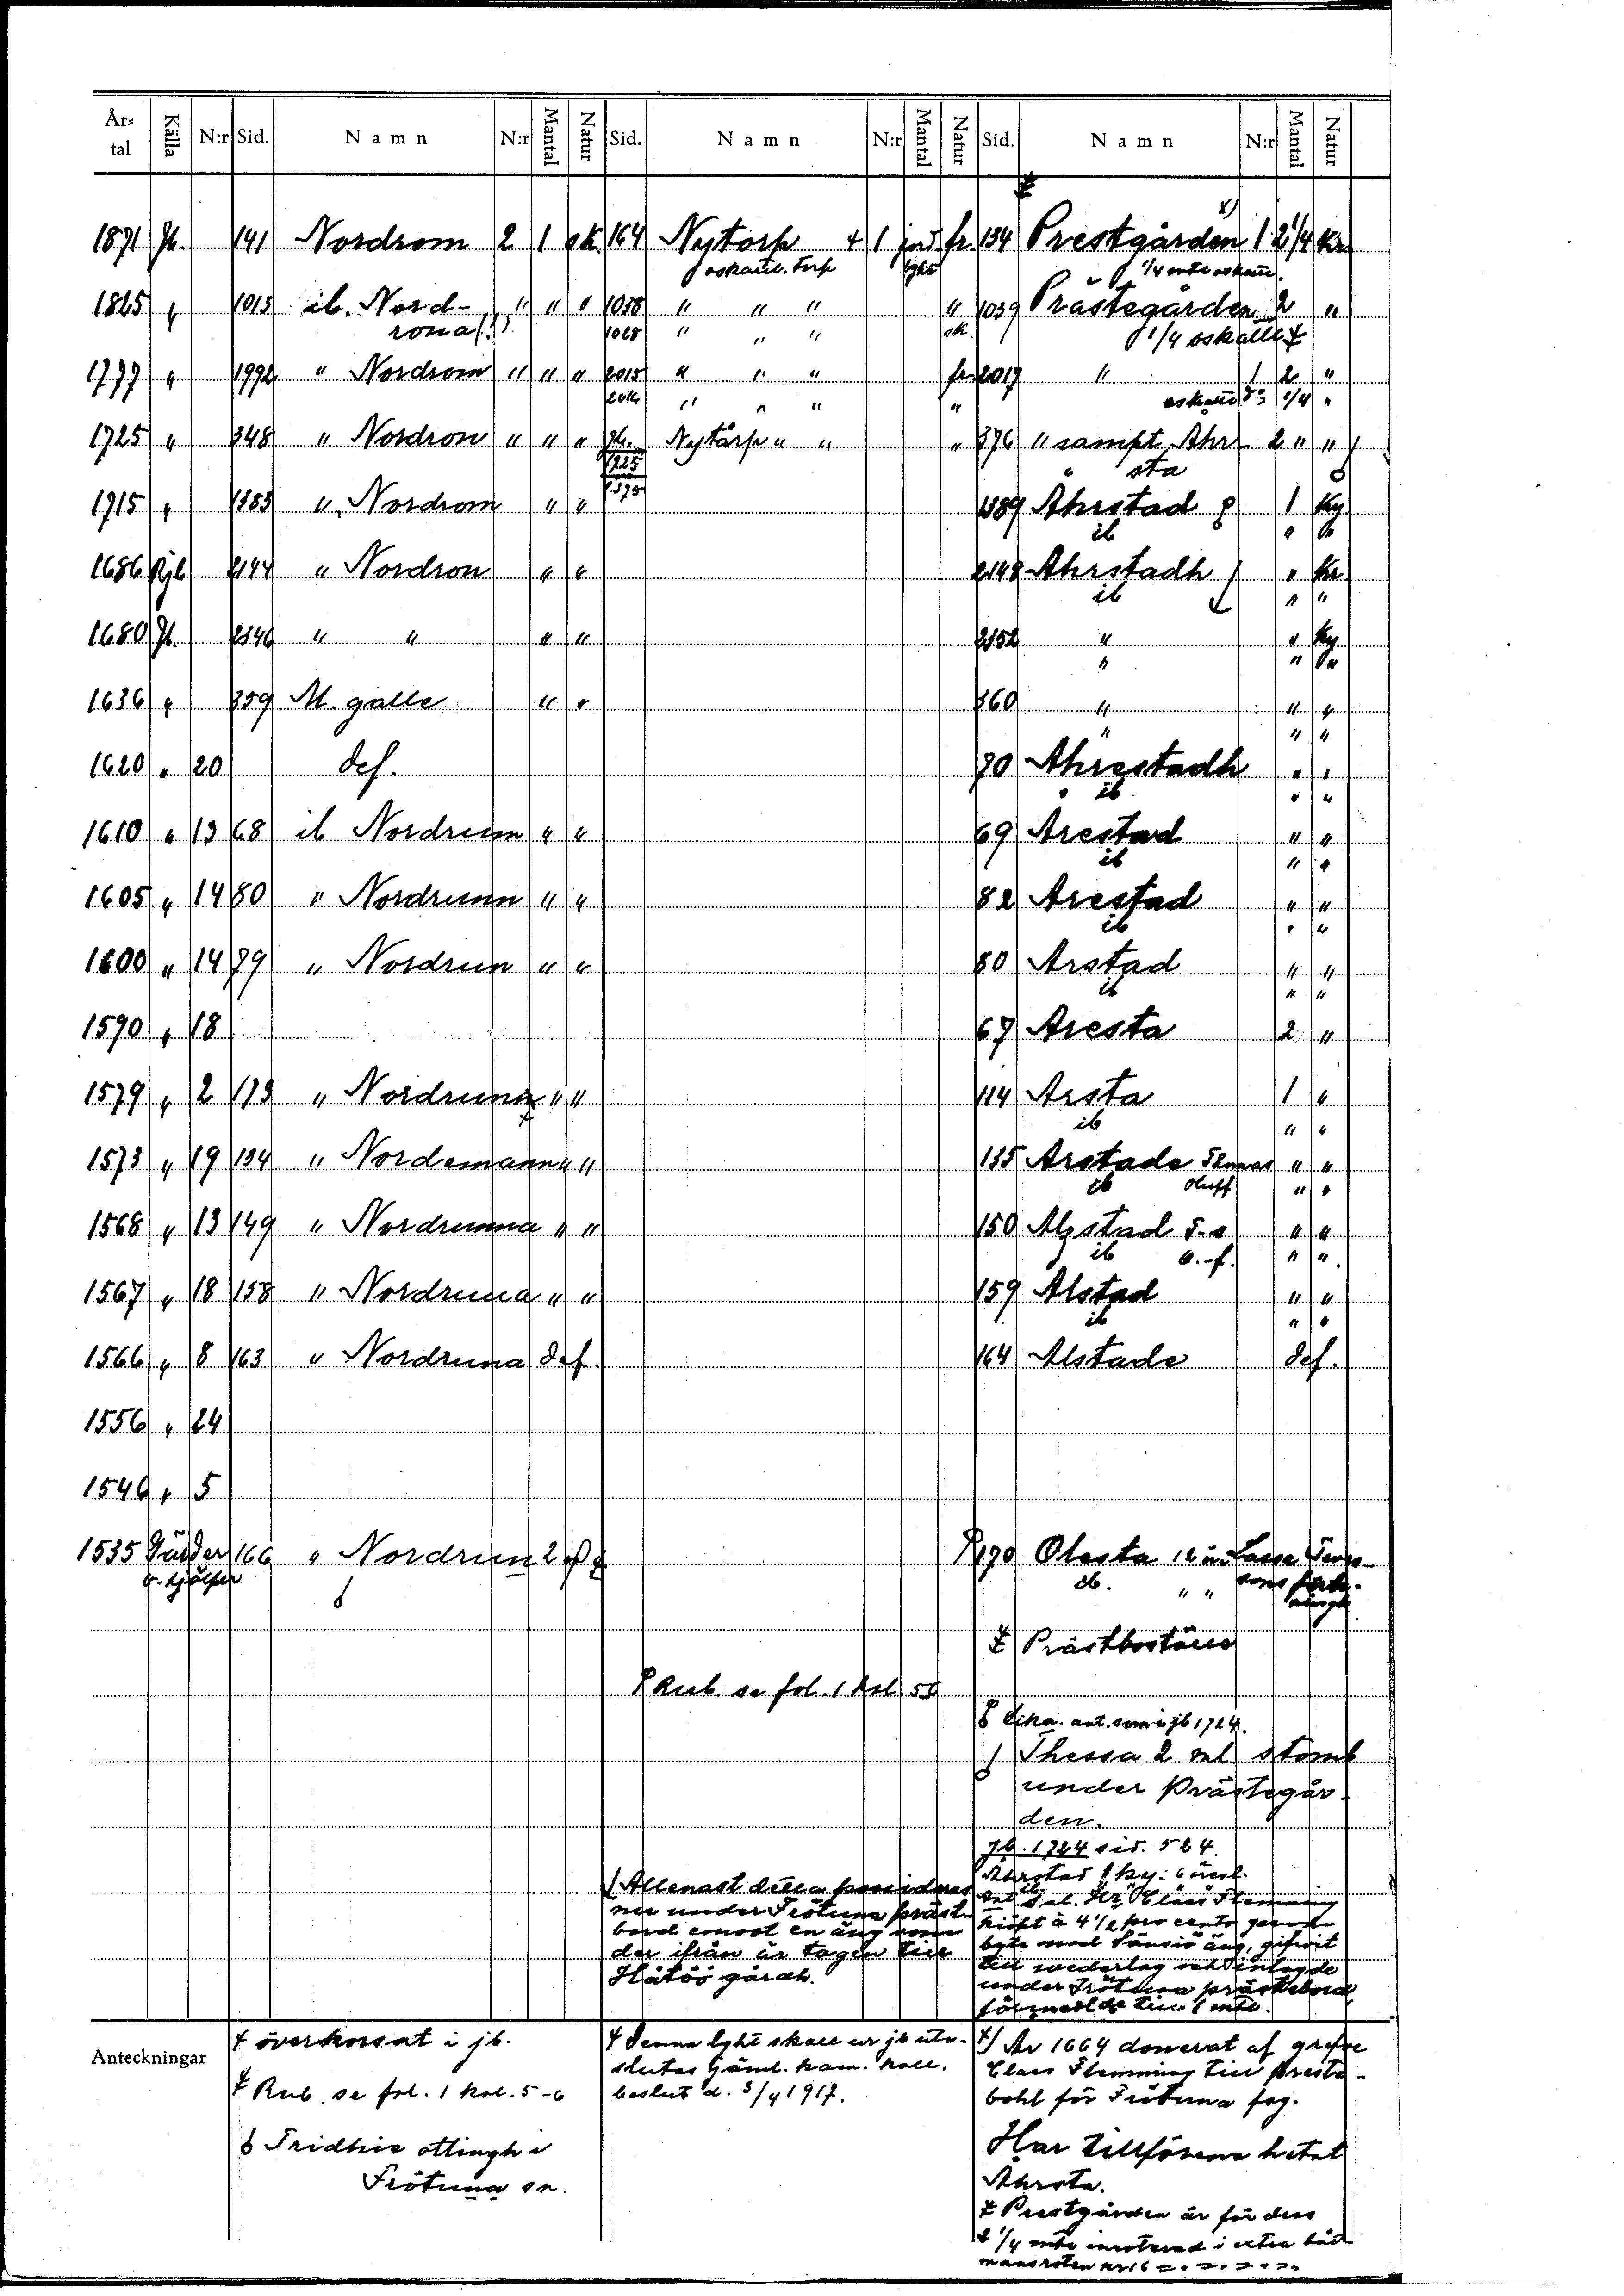 År-tal Källa N:r Sid. Namn N:r Mantal Natur Sid. Namn N:r Mantal Natur Sid. Namn N:r Mantal Natur
1871 Jb. 141 Nordrom 2 1 sk. 164 Nytorp 1 jord fr. 134 Prestgården x) 1 2 1/4 Kr
oskattl. torp lght 1/4 mtl oskattl.
1825 " 1013 ib. Nord- " " " 1038 " " " " 1039 Prästegården 2 "
rona (!) 1028 " " " sk. 1/4 oskattl.
1777 " 1992 " Nordrom " " " 2015 " " " fr. 2017 " 1 2 "
2016 " " " " oskattl. 1/4 "
1725 " 348 " Nordron " " " Jb. Nytårp " " " 376 " sampt Ahr- 2 " "
1725 sta
1375
1715 " 1383 " Nordrom " " 1389 Åhrstad 1 Ky
ib " "
1686 Rjb 2144 " Nordron " " 2148 Ahrstadh " Kr.
ib " "
1680 Jb. 2346 " " " " 2352 " " Ky
" " "
1636 " 359 M. galle " " 360 " " "
" " "
1620 " 20 def. 70 Ahrestadh " "
ib " "
1610 " 13 68 ib Nordrum " " 69 Arestad " "
ib " "
1605 " 14 80 " Nordrunn " " 82 Arestad " "
ib " "
1600 " 14 79 " Nordrun " " 80 Arstad " "
ib " "
1590 " 18 67 Aresta 2 "
1579 " 2 113 " Nordrunn " " 114 Arsta 1 "
ib " "
1573 " 19 134 " Nordemann " " 135 Arstade Thomas " "
ib Oluff " "
1568 " 13 149 " Nordrunna " " 150 Alstad T-s " "
ib O.-f. " "
1567 " 18 158 " Nordruna " " 159 Alstad " "
ib " "
1566 " 8 163 " Nordruna def. 164 Alstade def.
1556 " 24
1546 " 5
1535 Gärder 166 " Nordrun 2 170 Olesta 12 Lasse
o. hjälper ib. " " sons
Prästboställe
Rub. se fol. 1 kol. 5
Lika ant. som i jb 1724.
Thessa 2 ml. stomb
under Prästegår-
den.
Jb. 1724 sid. 524.
Ahrstad 1 ky:
Allenast detta
ner under Frötuna präst-
bord emot en äng som
der ifrån är tagen till
Håtöö gårdh.
Sal. Hr Claes Flemming
kiöpt à 4 1/2 pro cento
byte med äng, gifwit
till wederlag och inlagde
under Frötuna prästebord,
förmedlde till 1 mtl.
Anteckningar
överkorsat i jb.
Rub. se fol. 1 kol. 5-6
Tridhie ottingh i
Frötuna sn.
Denna lght skall ur jb ute-
slutas jäml. kam. koll.
beslut d. 3/4 1917.
x) År 1664 donerat af grefve
Claes Flemming till preste-
bohl för Frötuna förs.
Har tillförene hetat
Åhrsta.
Prestgården är för dess
2 1/4 mtl inroterad i extra båt-
mansroten nr 16